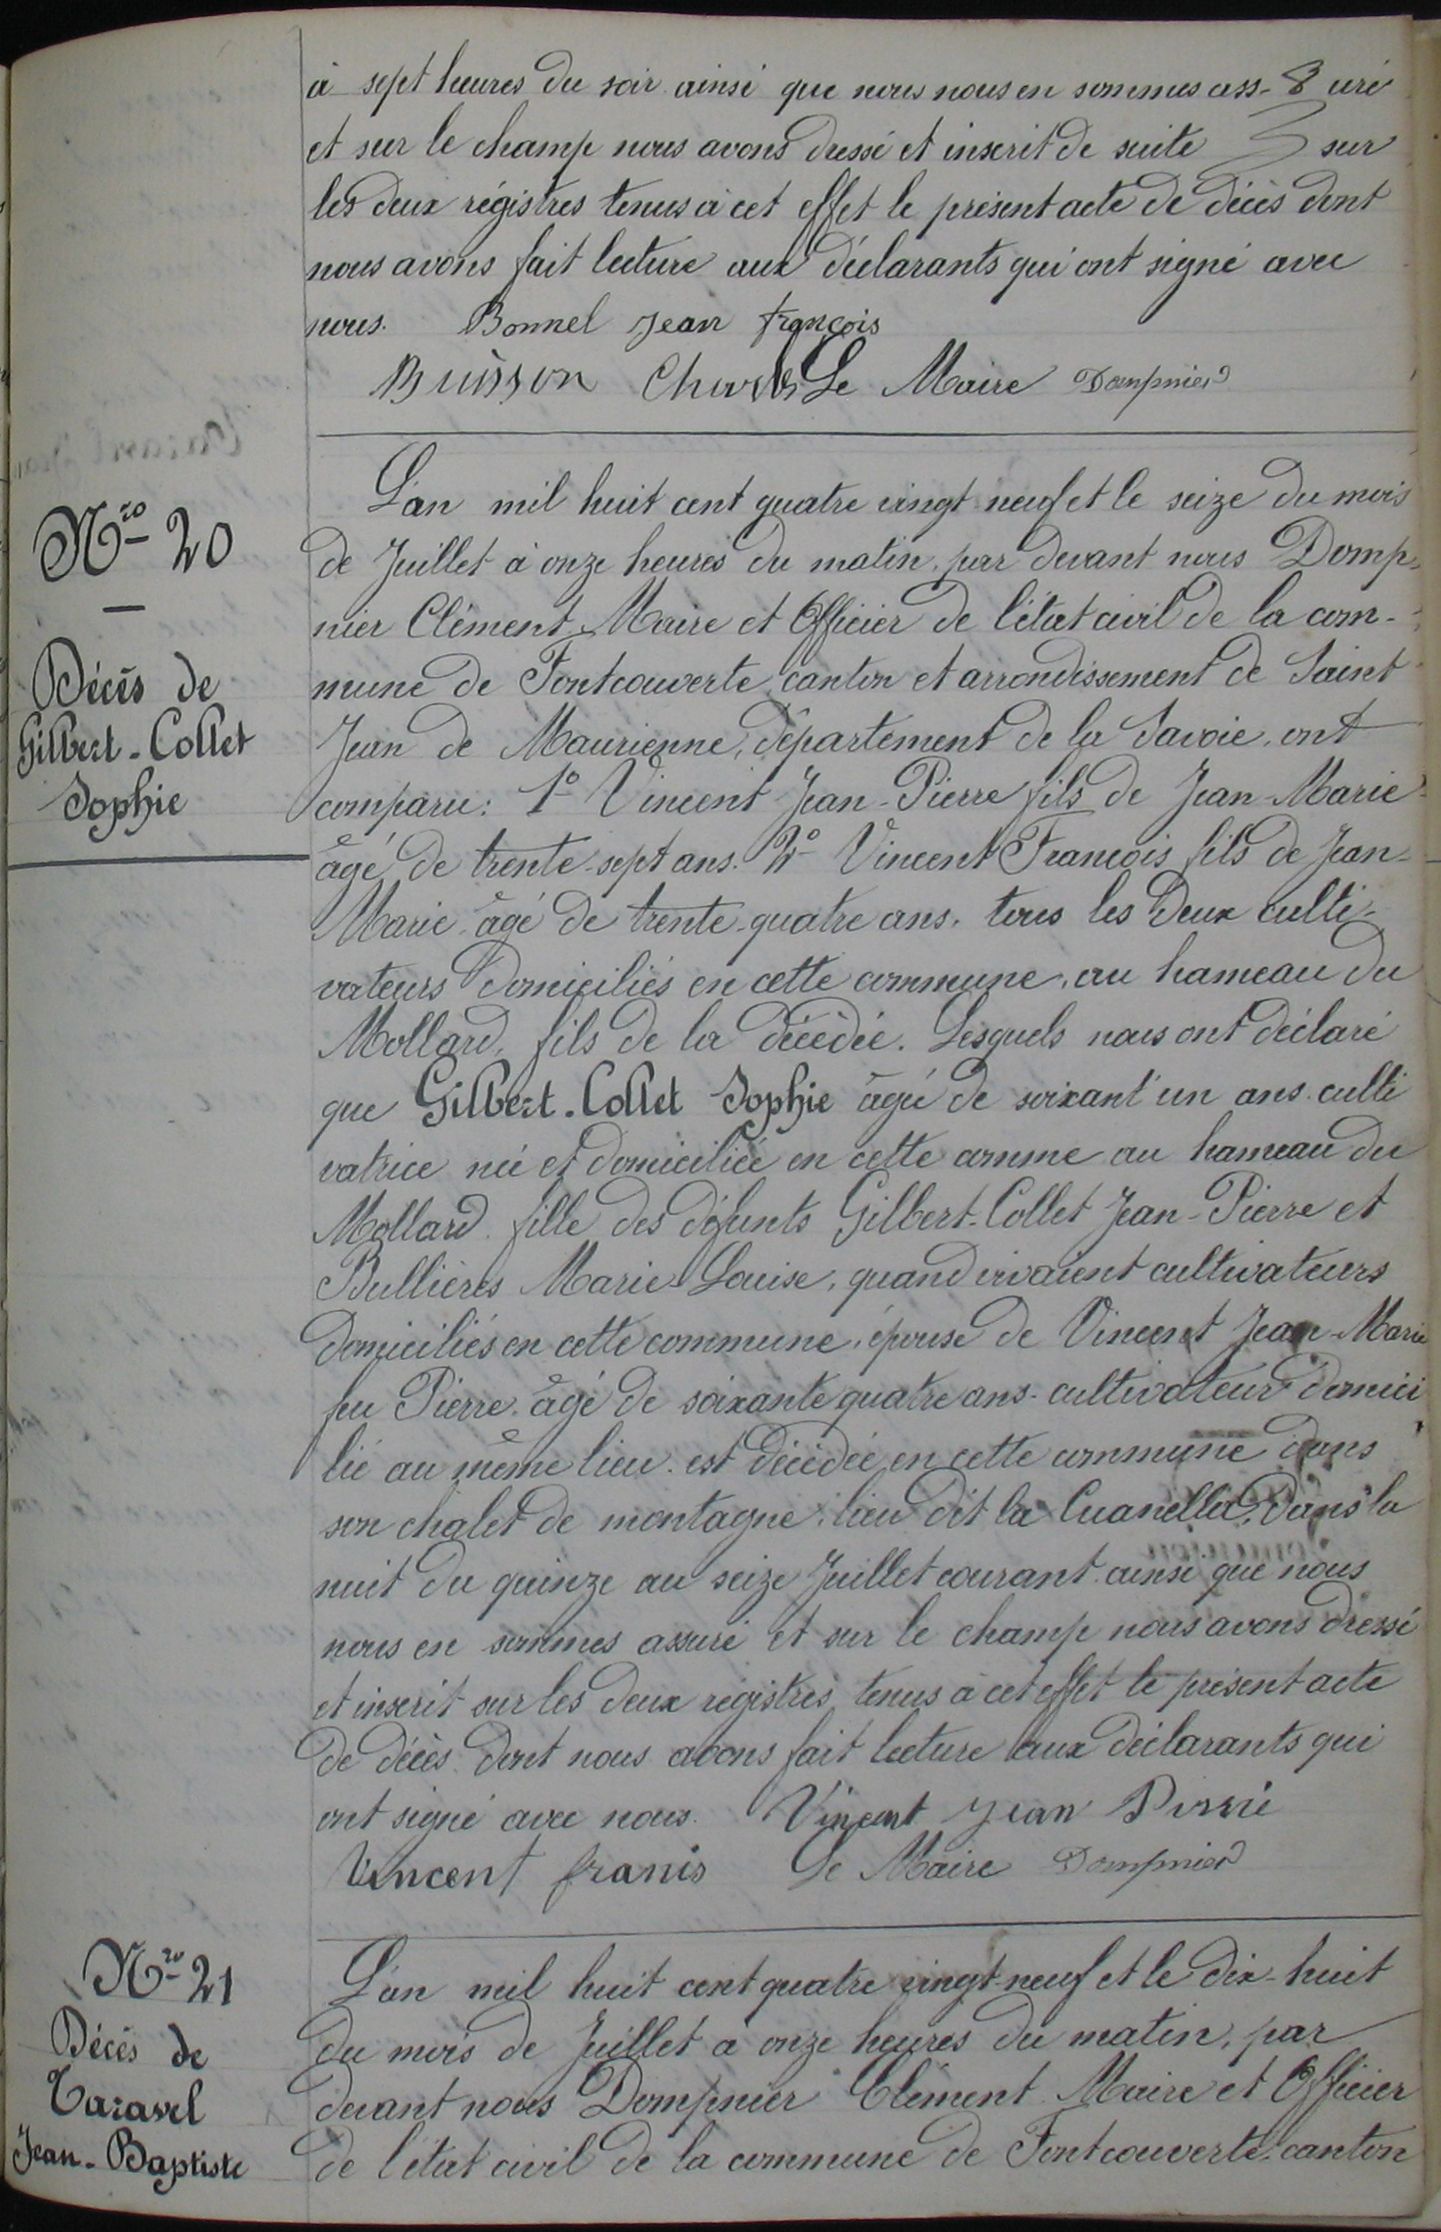 à sept heures du soir ainsi que nous nous en sommes ass- uré
et sur le champ nous avons dressé et inscrit de suite sur
les deux régistres tenus à cet effet le présent acte de décès dont
nous avons fait lecture aux déclarants qui ont signé avec
nous. Bonnel Jean françois
Buisson Charles Le Maire Dompnier
Nro 20
Décès de
Gilbert-Collet
Sophie
L'an mil huit cent quatre vingt neuf et le seize du mois
de Juillet à onze heures du matin, par devant nous Domp-
nier Clément, Maire et Officier de l'état civil de la com-
mune de Fontcouverte, canton et arrondissement de Saint
Jean de Maurienne, département de la Savoie, ont
comparu: 1° Vincent Jean-Pierre fils de Jean-Marie
âgé de trente-sept ans. 2° Vincent François fils de Jean-
Marie âgé de trente-quatre ans, tous les deux culti-
vateurs domiciliés en cette commune, au hameau du
Mollard, fils de la décédée. Lesquels nous ont déclaré
que Gilbert-Collet Sophie âgée de soixant'un ans culti
vatrice née et domiciliée en cette comme au hameau du
Mollard fille des défunts Gilbert-Collet Jean-Pierre et
Bullières Marie-Louise, quand vivaient cultivateurs
domiciliés en cette commune, épouse de Vincent Jean-Marie
feu Pierre âgé de soixante quatre ans cultivateur domici
lié au même lieu est décédée en cette commune dans
son chalet de montagne, lieu dit la Cuanella, dans la
nuit du quinze au seize Juillet courant ainsi que nous
nous en sommes assuré et sur le champ nous avons dressé
et inscrit sur les deux régistres tenus à cet effet le présent acte
de décès dont nous avons fait lecture aux déclarants qui
ont signé avec nous. Vincent Jean Pierre
Vincent franis Le Maire Dompnier
Nro 21
Décès de
Taravel
Jean-Baptiste
L'an mil huit cent quatre vingt-neuf et le dix-huit
du mois de Juillet à onze heures du matin, par
devant nous Dompnier Clément Maire et Officier
de l'état civil de la commune de Fontcouverte, canton